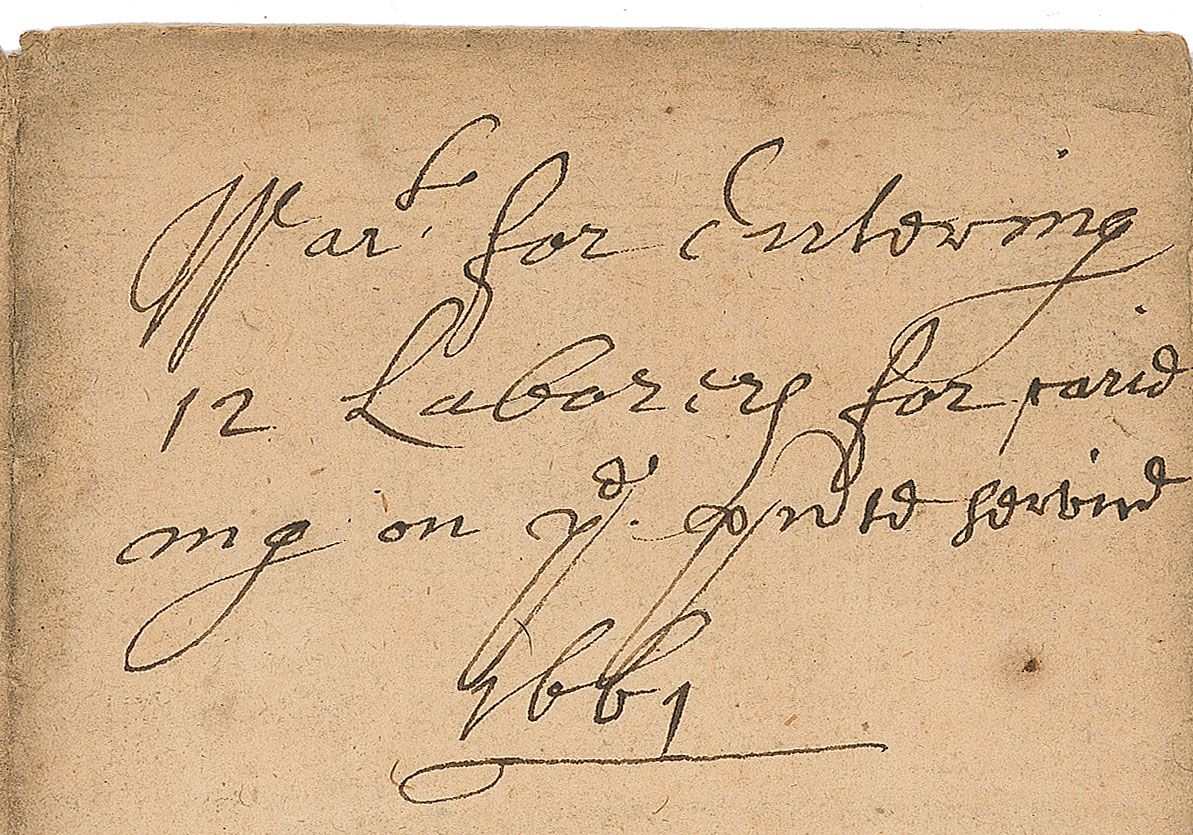 War.t for Entering
12 Laborers for carie
ing on y.e pnte service
1661